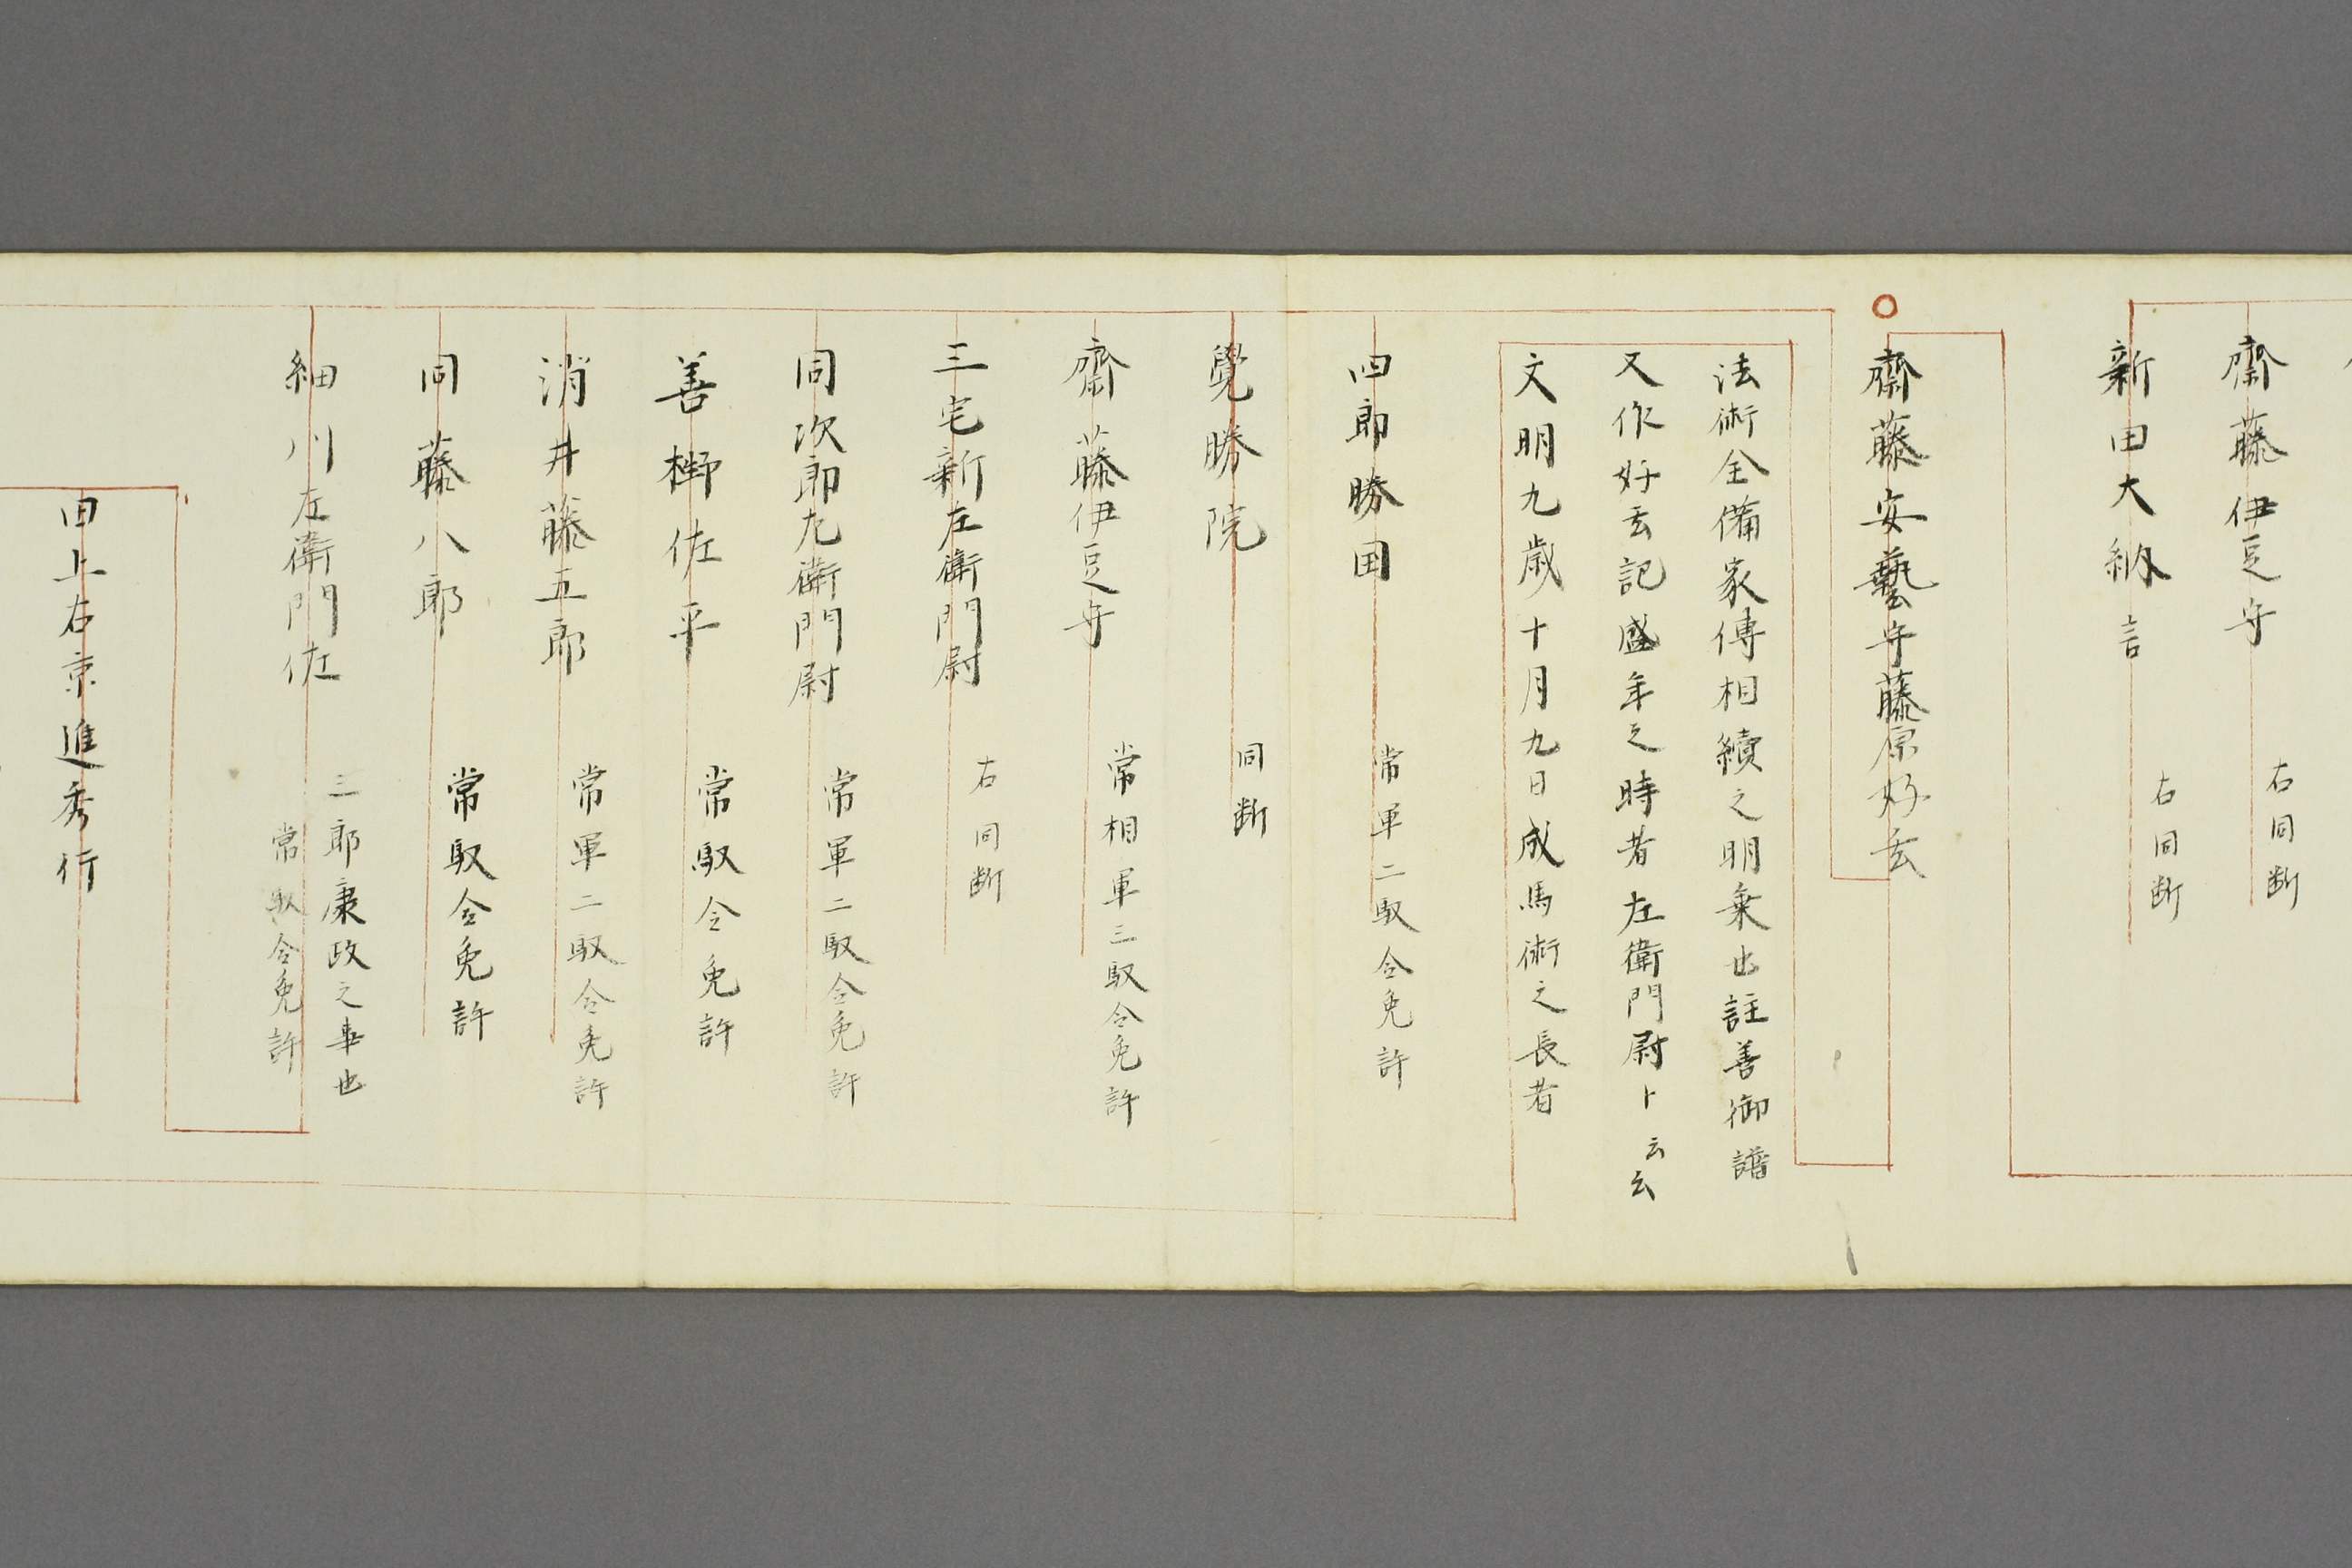 齋藤伊豆守　右同断
新田大納言　右同断
齋藤安藝守藤原好玄
法術全備家傳相續之明乗也註善御譜
又作好玄記盛年之時者左衛門尉ト云云
文明九歳十月九日成馬術之長者
四郎勝田　常軍二馭令免許
覺勝院　同断
齋藤伊豆守　常相軍三馭令免許
三宅新左衛門尉　右同断
同次郎九衛門尉　常軍二馭令免許
善 佐平　常馭令免許
消井藤五郎　常軍二馭令免許
同藤八郎　常馭令免許
細川左衛門佐　三郎康政之事也
常馭令免許
田上右京進秀行